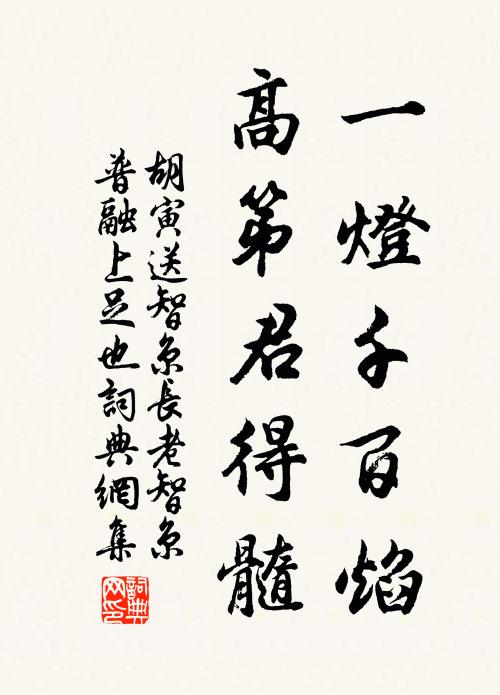 一燈千百焰
高第君得髓
胡寅送智京長老智京
普融上足也詞典網集
詞典网印